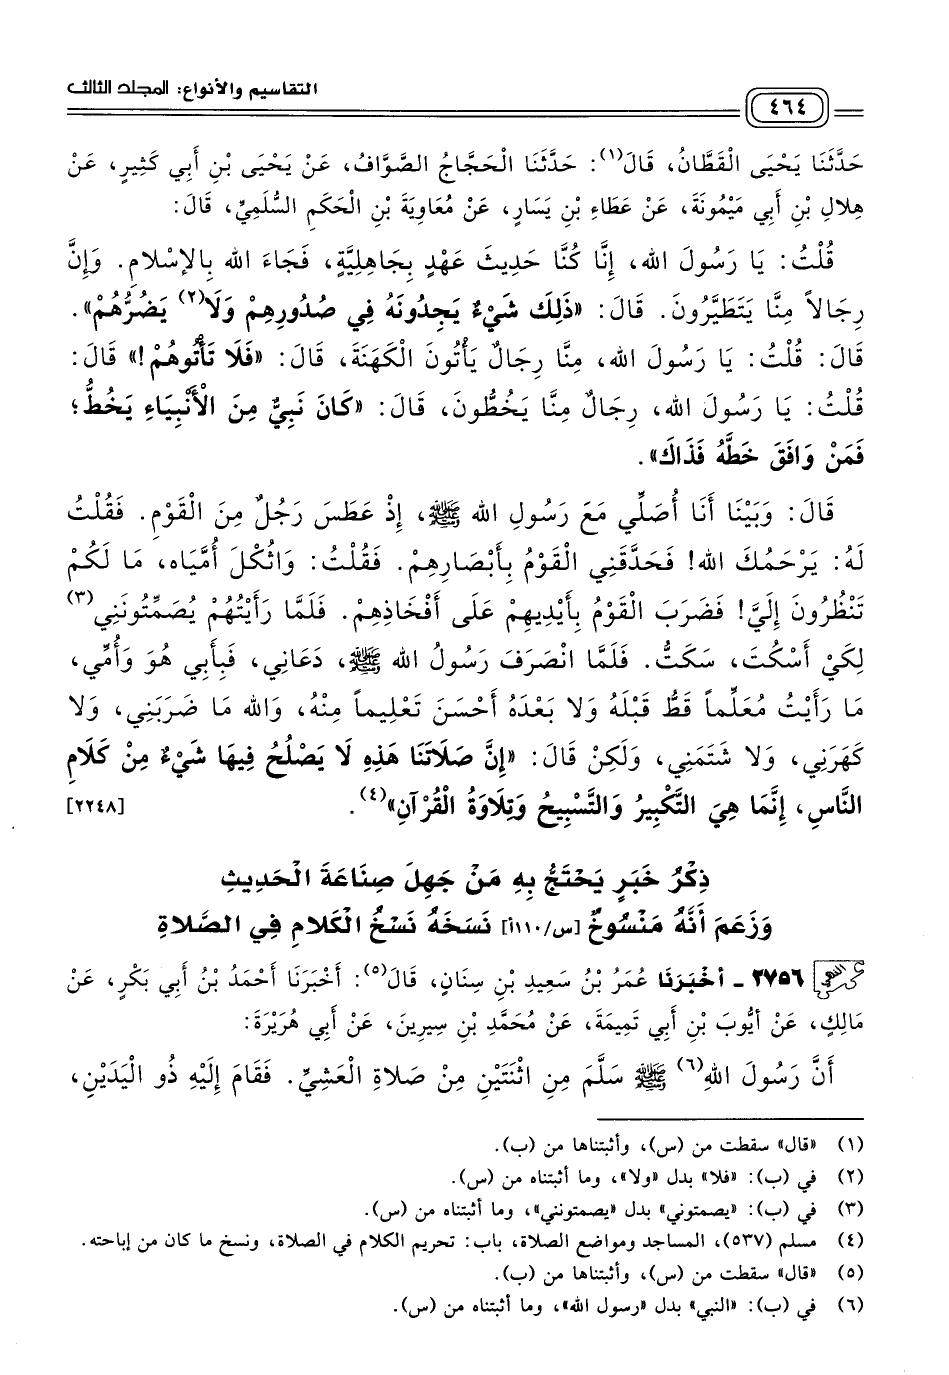 التقاسيم والأنواع: المجلد الثالث
٤٦٤
حَدَّثَنَا يَحْيَى الْقَطَّانُ، قَالَ(١): حَدَّثَنَا الْحَجَّاجُ الصَّوَّافُ، عَنْ يَحْيَى بْنِ أَبِي كَثِيرٍ، عَنْ
هِلالِ بْنِ أَبِي مَيْمُونَةَ، عَنْ عَطَاءِ بْنِ يَسَارٍ، عَنْ مُعَاوِيَةَ بْنِ الْحَكَمِ السُّلَمِيِّ، قَالَ:
قُلْتُ: يَا رَسُولَ اللهِ، إِنَّا كُنَّا حَدِيثَ عَهْدٍ بِجَاهِلِيَّةٍ، فَجَاءَ اللهُ بِالإِسْلامِ. وَإِنَّ
رِجَالاً مِنَّا يَتَطَيَّرُونَ. قَالَ: «ذَلِكَ شَيْءٌ يَجِدُونَهُ فِي صُدُورِهِمْ وَلَا(٢) يَضُرُّهُمْ».
قَالَ: قُلْتُ: يَا رَسُولَ اللهِ، مِنَّا رِجَالٌ يَأْتُونَ الْكَهَنَةَ، قَالَ: «فَلَا تَأْتُوهُمْ!» قَالَ:
قُلْتُ: يَا رَسُولَ اللهِ، رِجَالٌ مِنَّا يَخُطُّونَ، قَالَ: «كَانَ نَبِيٌّ مِنَ الْأَنْبِيَاءِ يَخُطُّ؛
فَمَنْ وَافَقَ خَطَّهُ فَذَاكَ».
قَالَ: وَبَيْنَا أَنَا أُصَلِّي مَعَ رَسُولِ اللهِ ﷺ، إِذْ عَطَسَ رَجُلٌ مِنَ الْقَوْمِ. فَقُلْتُ
لَهُ: يَرْحَمُكَ اللهُ! فَحَدَّقَنِي الْقَوْمُ بِأَبْصَارِهِمْ. فَقُلْتُ: وَاثُكْلَ أُمِّيَاه، مَا لَكُمْ
تَنْظُرُونَ إِلَيَّ! فَضَرَبَ الْقَوْمُ بِأَيْدِيهِمْ عَلَى أَفْخَاذِهِمْ. فَلَمَّا رَأَيْتُهُمْ يُصَمِّتُونَنِي(٣)
لِكَيْ أَسْكُتَ، سَكَتُّ. فَلَمَّا انْصَرَفَ رَسُولُ اللهِ ﷺ، دَعَانِي، فَبِأَبِي هُوَ وَأُمِّي،
مَا رَأَيْتُ مُعَلِّماً قَطُّ قَبْلَهُ وَلا بَعْدَهُ أَحْسَنَ تَعْلِيماً مِنْهُ، وَاللهِ مَا ضَرَبَنِي، وَلا
كَهَرَنِي، وَلا شَتَمَنِي، وَلَكِنْ قَالَ: «إِنَّ صَلَاتَنَا هَذِهِ لَا يَصْلُحُ فِيهَا شَيْءٌ مِنْ كَلَامِ
النَّاسِ، إِنَّمَا هِيَ التَّكْبِيرُ وَالتَّسْبِيحُ وَتِلَاوَةُ الْقُرْآنِ»(٤). [٢٢٤٨]
ذِكْرُ خَبَرٍ يَحْتَجُّ بِهِ مَنْ جَهِلَ صِنَاعَةَ الْحَدِيثِ
وَزَعَمَ أَنَّهُ مَنْسُوخٌ [س/١١٠أ] نَسَخَهُ نَسْخُ الْكَلامِ فِي الصَّلاةِ
٢٧٥٦ - أَخْبَرَنَا عُمَرُ بْنُ سَعِيدِ بْنِ سِنَانٍ، قَالَ(٥): أَخْبَرَنَا أَحْمَدُ بْنُ أَبِي بَكْرٍ، عَنْ
مَالِكٍ، عَنْ أَيُّوبَ بْنِ أَبِي تَمِيمَةَ، عَنْ مُحَمَّدِ بْنِ سِيرِينَ، عَنْ أَبِي هُرَيْرَةَ:
أَنَّ رَسُولَ اللهِ(٦) ﷺ سَلَّمَ مِنِ اثْنَتَيْنِ مِنْ صَلاةِ الْعَشِيِّ. فَقَامَ إِلَيْهِ ذُو الْيَدَيْنِ،
(١) «قال» سقطت من (س)، وأثبتناها من (ب).
(٢) في (ب): «فلا» بدل «ولا»، وما أثبتناه من (س).
(٣) في (ب): «يصمتوني» بدل «يصمتونني»، وما أثبتناه من (س).
(٤) مسلم (٥٣٧)، المساجد ومواضع الصلاة، باب: تحريم الكلام في الصلاة، ونسخ ما كان من إباحته.
(٥) «قال» سقطت من (س)، وأثبتناها من (ب).
(٦) في (ب): «النبي» بدل «رسول الله»، وما أثبتناه من (س).